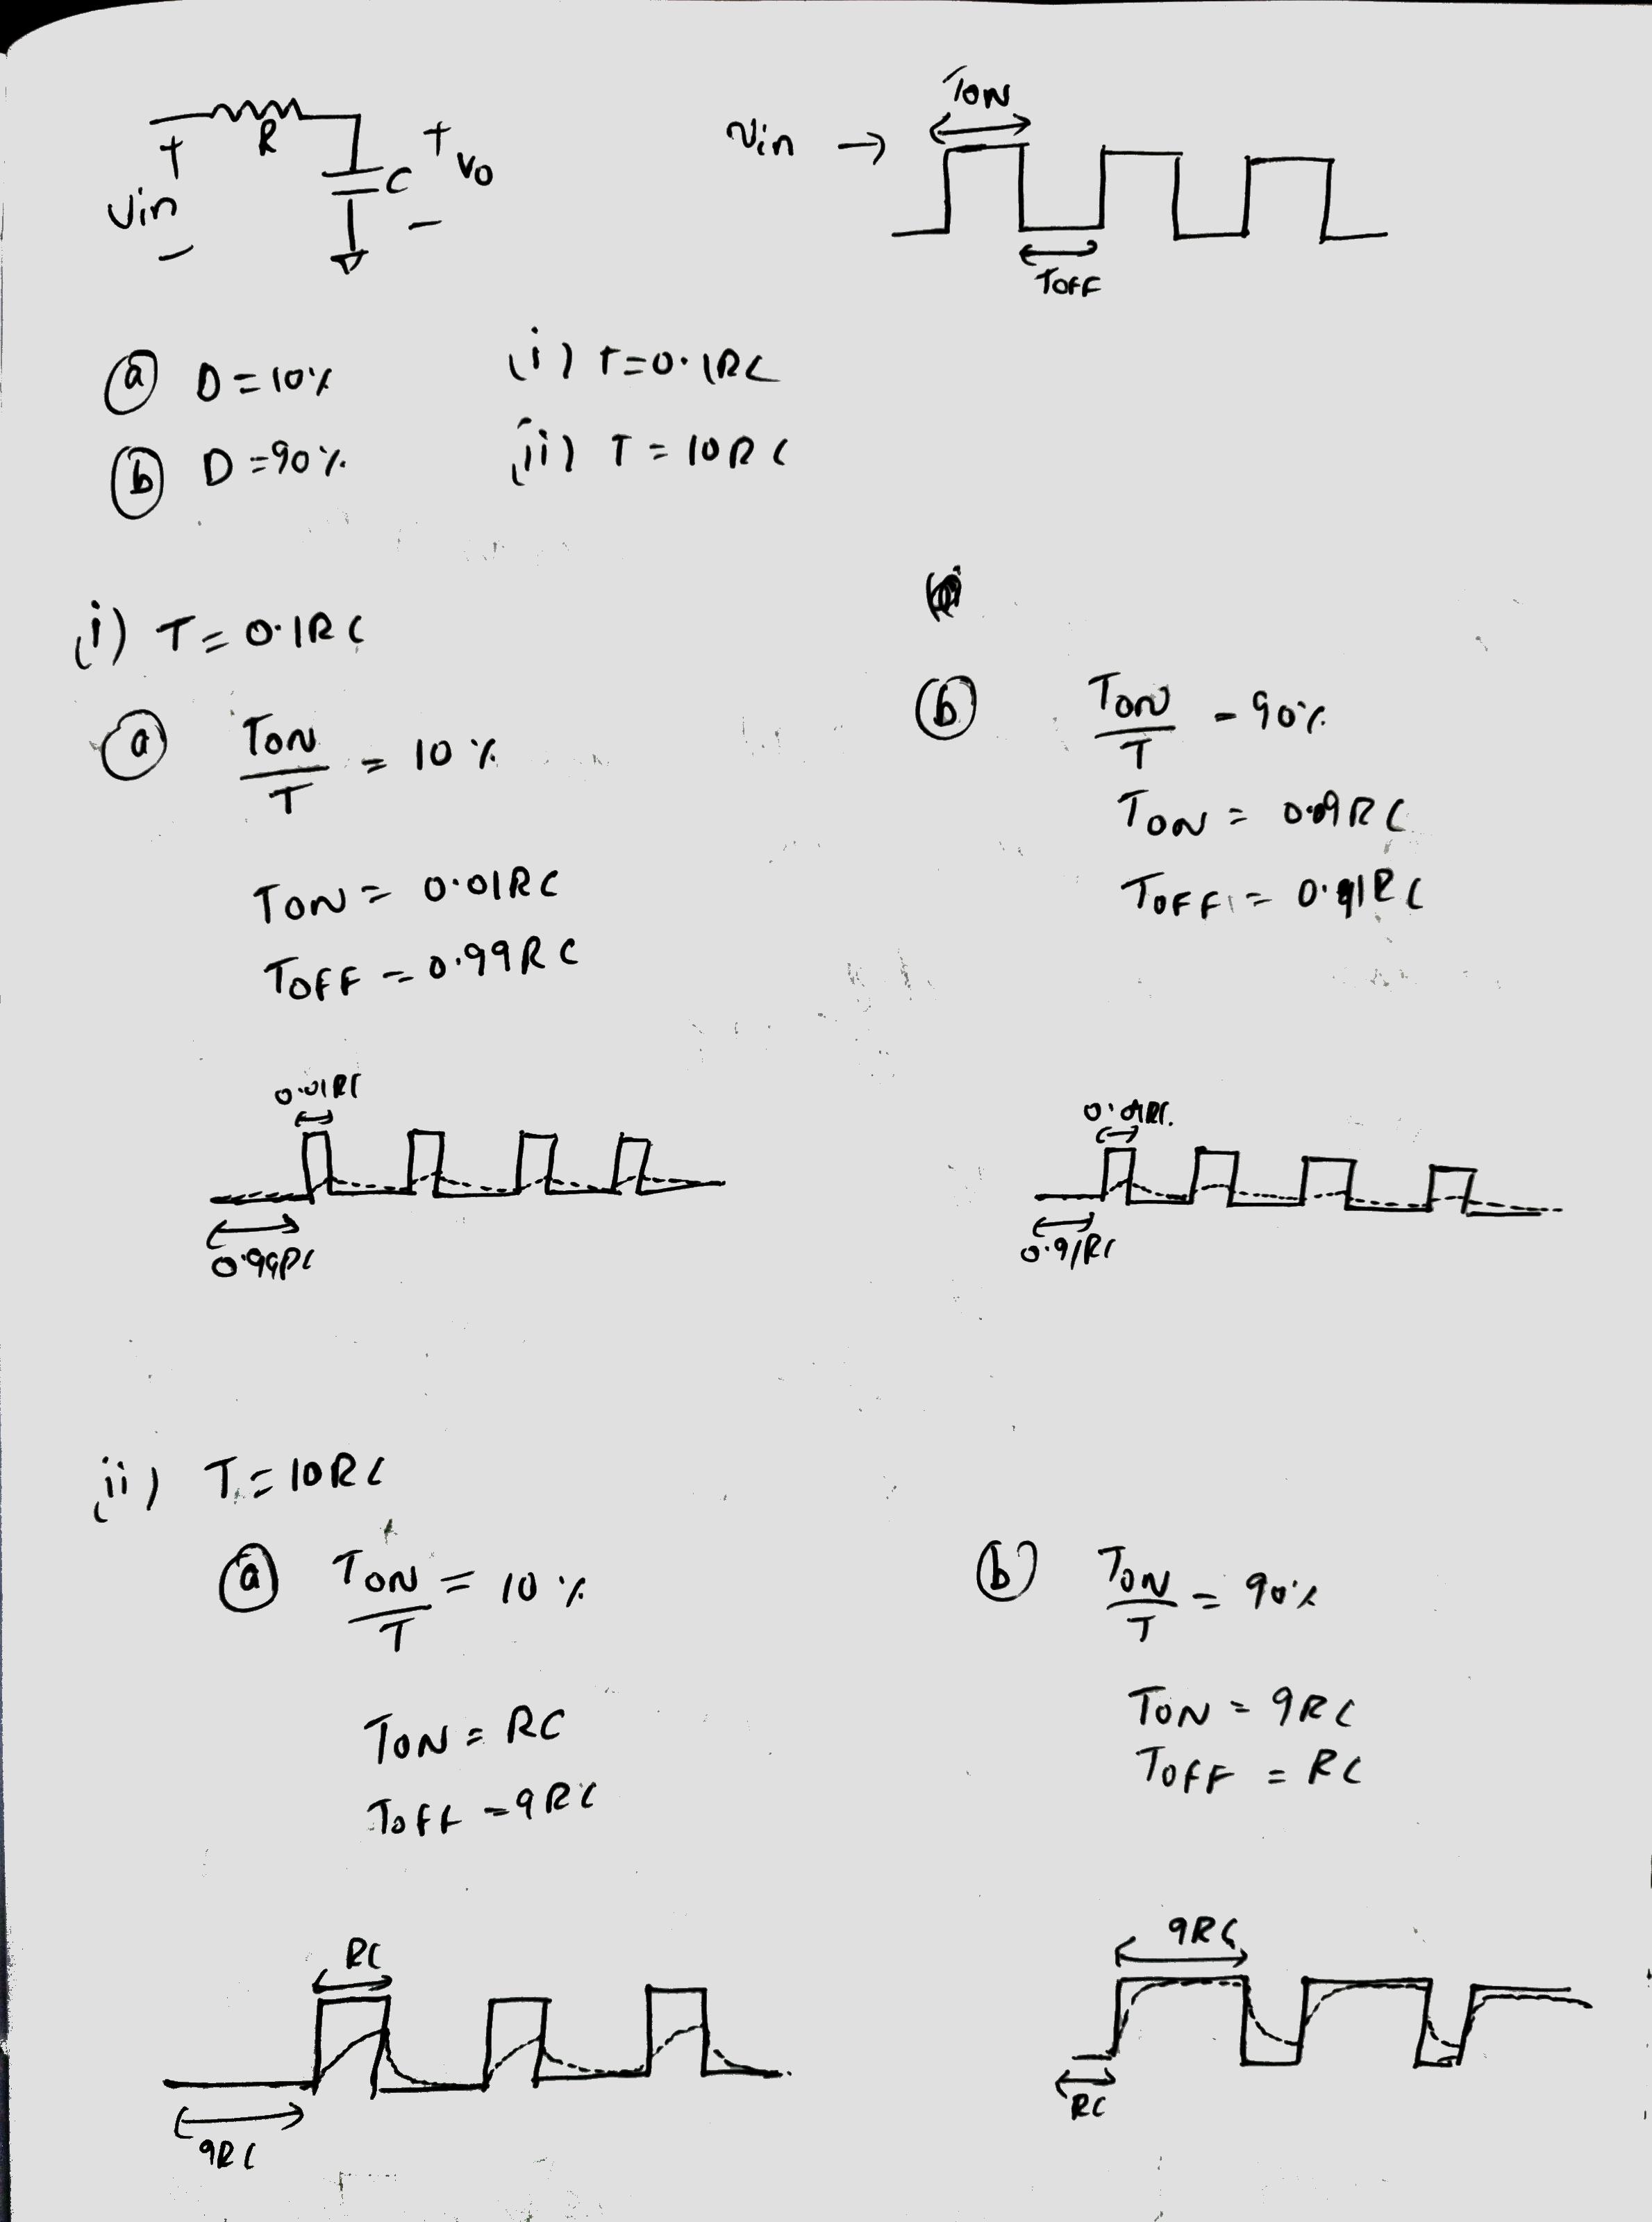 R
C
+
Vin
−
+
Vo
−
Vin →
TON
TOFF
(a) D = 10%
(i) T = 0.1RC
(b) D = 90%
(ii) T = 10RC
(i) T = 0.1RC
(a) TON/T = 10%
TON = 0.01RC
TOFF = 0.99RC
0.01RC
0.99RC
(b) TON/T = 90%
TON = 0.09RC
TOFF = 0.91RC
0.09RC.
0.91RC
(ii) T = 10RC
(a) TON/T = 10%
TON = RC
TOFF = 9RC
RC
9RC
(b) TON/T = 90%
TON = 9RC
TOFF = RC
9RC
RC